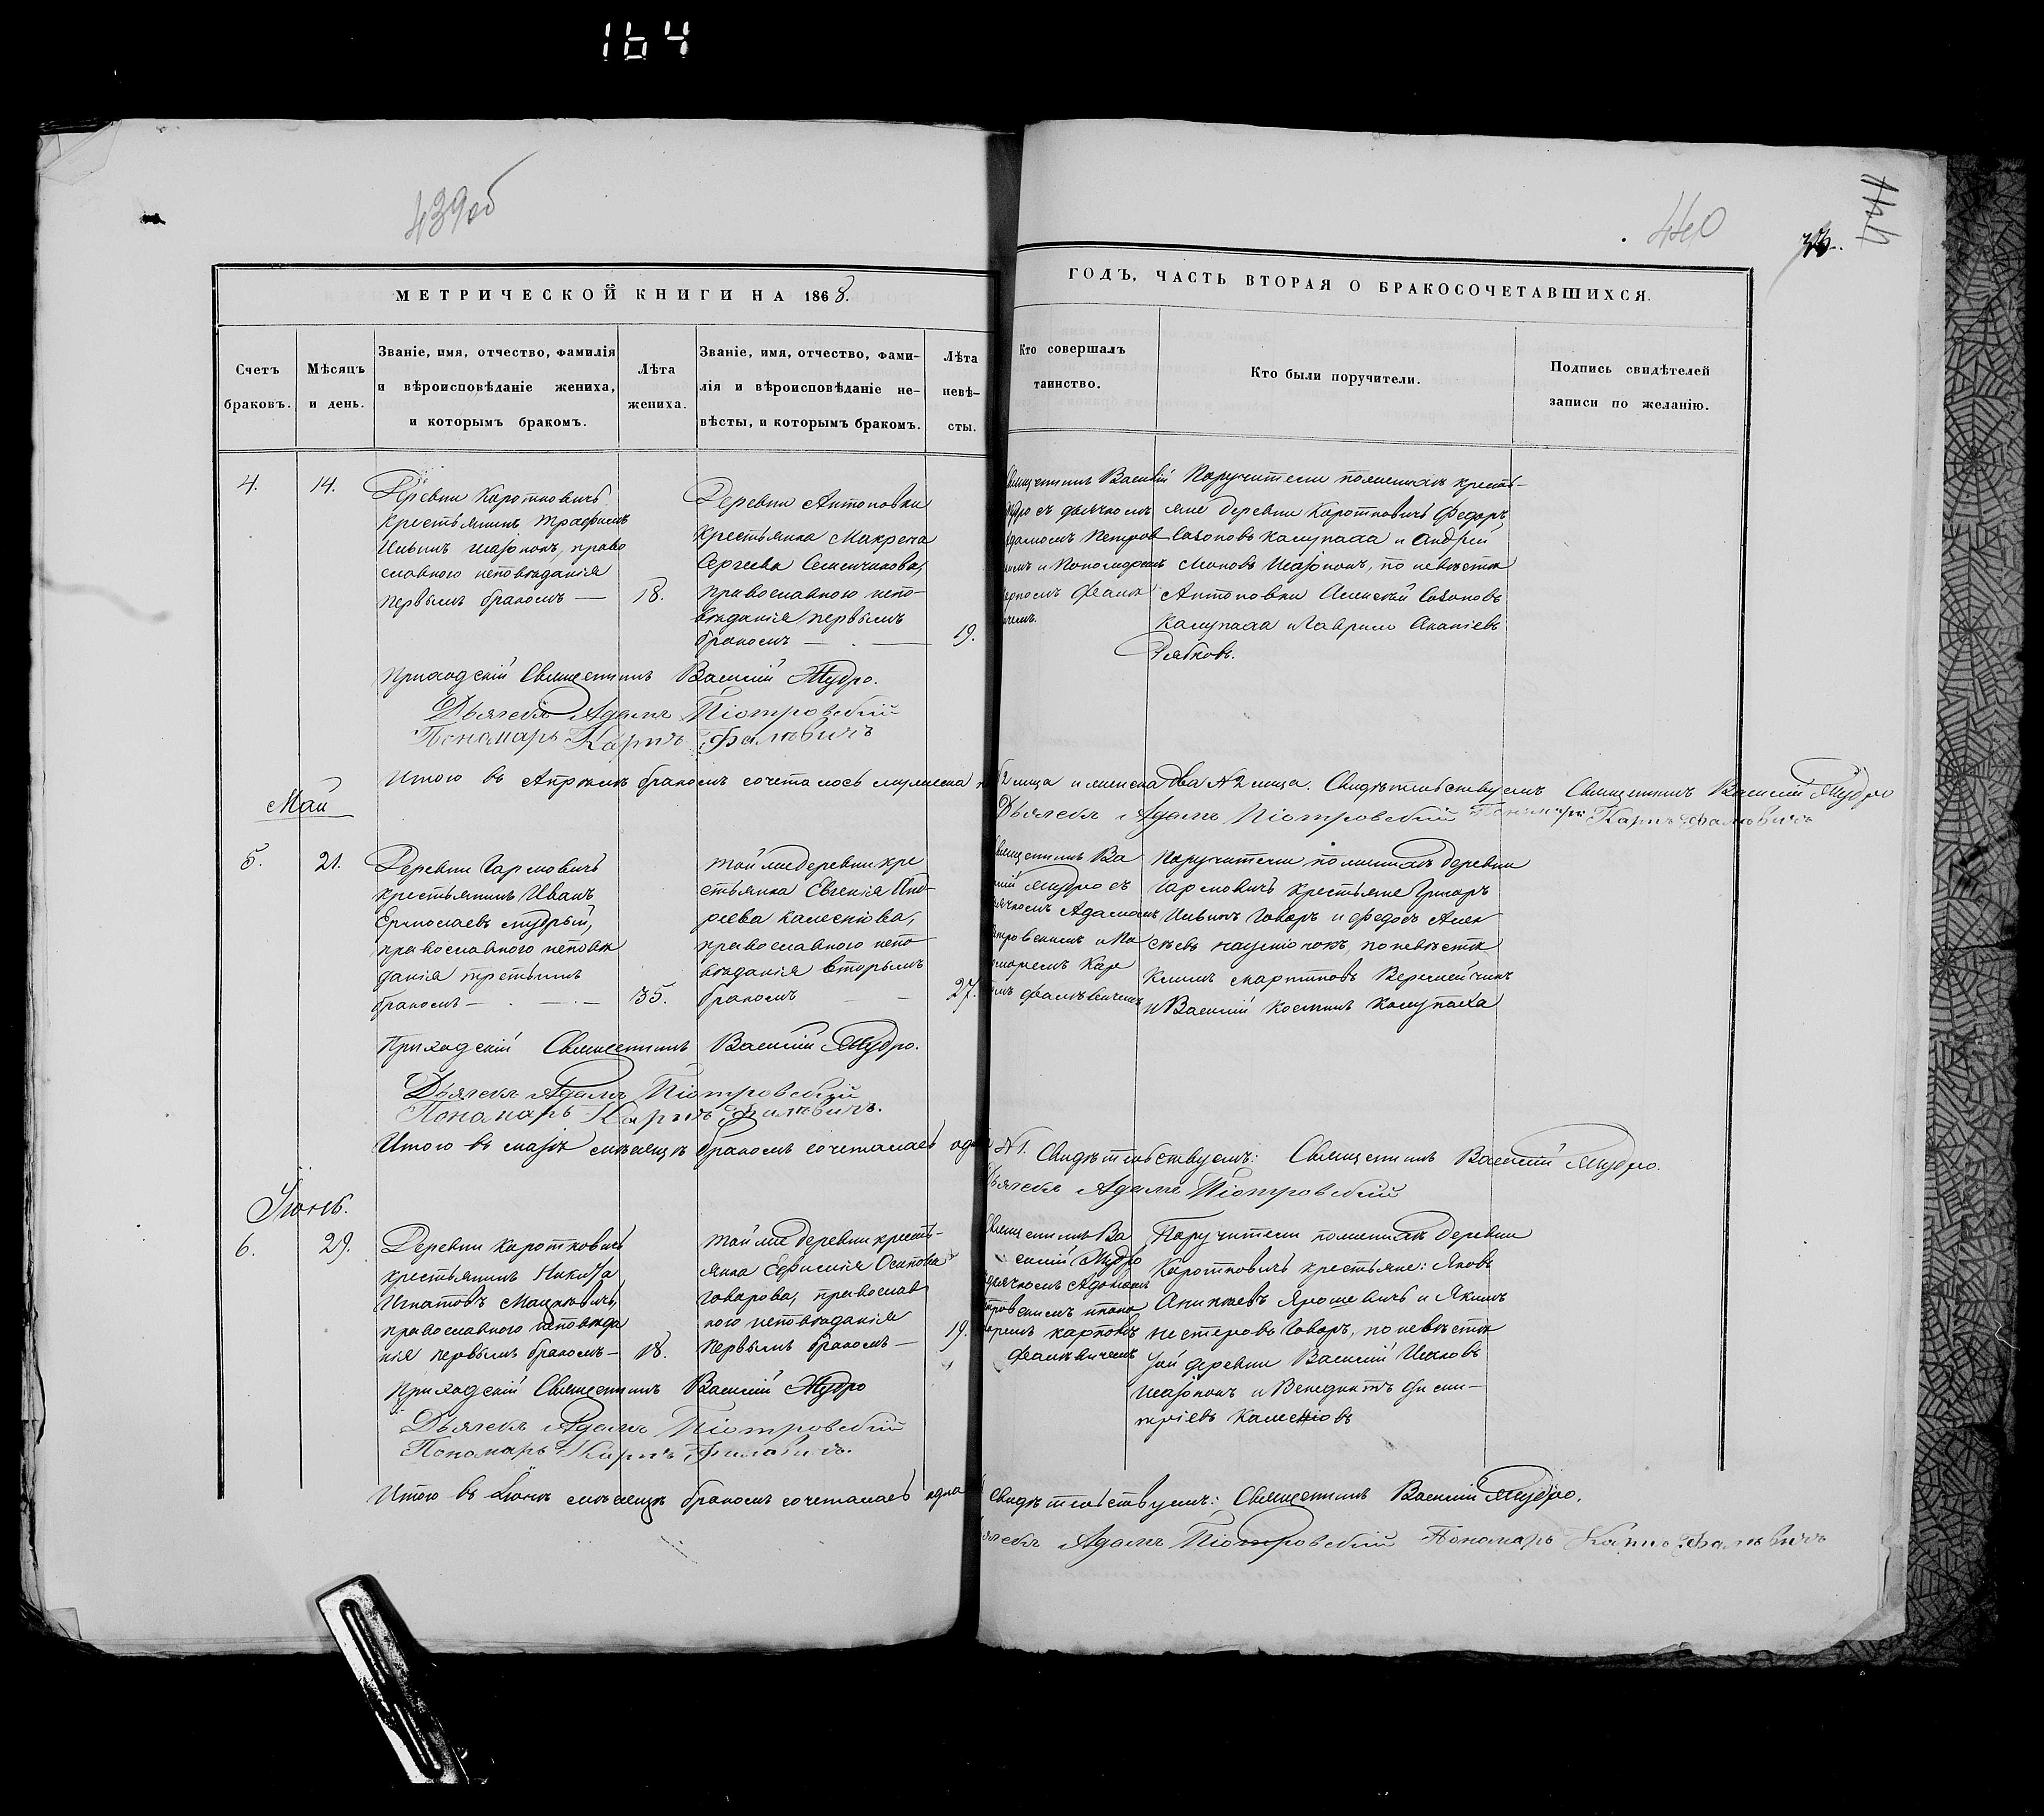 164
439об
440
МЕТРИЧЕСКОЙ КНИГИ НА 1868.
ГОДЪ, ЧАСТЬ ВТОРАЯ О БРАКОСОЧЕТАВШИХСЯ.
Счетъ браковъ.
Мѣсяцъ и день.
Званіе, имя, отчество, фамилія
и вѣроисповѣданіе жениха,
и которымъ бракомъ.
Лѣта жениха.
Званіе, имя, отчество, фами-
лія и вѣроисповѣданіе не-
вѣсты, и которымъ бракомъ.
Лѣта невѣ-
сты.
Кто совершалъ
таинство.
Кто были поручители.
Подпись свидѣтелей
записи по желанію.
4.
14.
Деревни Коротковичъ
крестьянинъ Трофимъ
Ильинъ право
славного исповѣданія
первымъ бракомъ —
18.
Деревни Антоновки
крестьянка Макрена
Сергѣева Семенчикова,
православного испо-
вѣданія первымъ
бракомъ —
19.
Василій
съ дьячкомъ
Петров
и Пономоремъ
Поручители по женихѣ кресть-
яне деревни Коротковичъ Федоръ
Сазоновъ Калупаха и Андрей
по невѣстѣ
Антоновки Алексѣй Сазоновъ
Калупаха и Гаврило Ананіевъ
Рябковъ.
Приходскій Священникъ Василій Мудро.
Дьячекъ Адамъ Піотровскій
Пономарь Карпъ Фалѣвичъ
Итого въ Апрѣлѣ бракомъ сочеталось мужеска
2 лица и женска два №2 лица. Свидѣтельствуемъ Священникъ Василій Мудро
Дьячекъ Адамъ Піотровскій Пономарь Карпъ Фалѣвичъ
Май
5.
21.
Деревни Гармовичъ
крестьянинъ Иванъ
Ермолаевъ Мудрый,
православного исповѣ
данія третьимъ
бракомъ —
35.
той же деревни кре
стьянка Евгенія Анд-
реева Калеснова,
православного испо
вѣданія вторымъ
бракомъ —
27.
Ва
Мудро съ
Адамомъ
и По
Кар
Фалѣвичемъ
Поручители по женихѣ деревни
Гармовичъ крестьяне Григоръ
Ильинъ Говоръ и Федосъ Алек
сѣевъ по невѣстѣ
Климъ Мартиновъ Веремейчикъ
и Василій Косминъ Калупаха
Приходскій Священникъ Василій Мудро.
Дьячекъ Адамъ Піотровскій
Пономарь Карпъ Фалѣвичъ.
Итого въ маѣ мѣсяцѣ бракомъ сочеталась одна
№1. Свидѣтельствуемъ: Священникъ Василій Мудро.
Дьячекъ Адамъ Піотровскій
Іюнь.
6.
29.
Деревни Коротковичъ
крестьянинъ Никита
Игнатовъ Мацкевичъ,
православного исповѣда
нія первымъ бракомъ —
18.
той же деревни кресть-
янка Ефимія Осипова
Говорова, православ
ного исповѣданія
первымъ бракомъ —
19.
Ва
силій Мудро
Адамомъ
Карпомъ
Фалѣвичемъ
Поручители по женихѣ деревни
Коротковичъ крестьяне: Яковъ
Ярошевичъ и Якимъ
Нестеровъ Говоръ, по невѣстѣ
той деревни Василій Исаковъ
и Венедиктъ Дми-
тріевъ
Приходскій Священникъ Василій Мудро
Дьячекъ Адамъ Піотровскій
Пономарь Карпъ Фалѣвичъ.
Итого въ Іюнѣ мѣсяцѣ бракомъ сочеталась одна
Свидѣтельствуемъ: Священникъ Василій Мудро.
Адамъ Піотровскій Пономарь Карпъ Фалѣвичъ